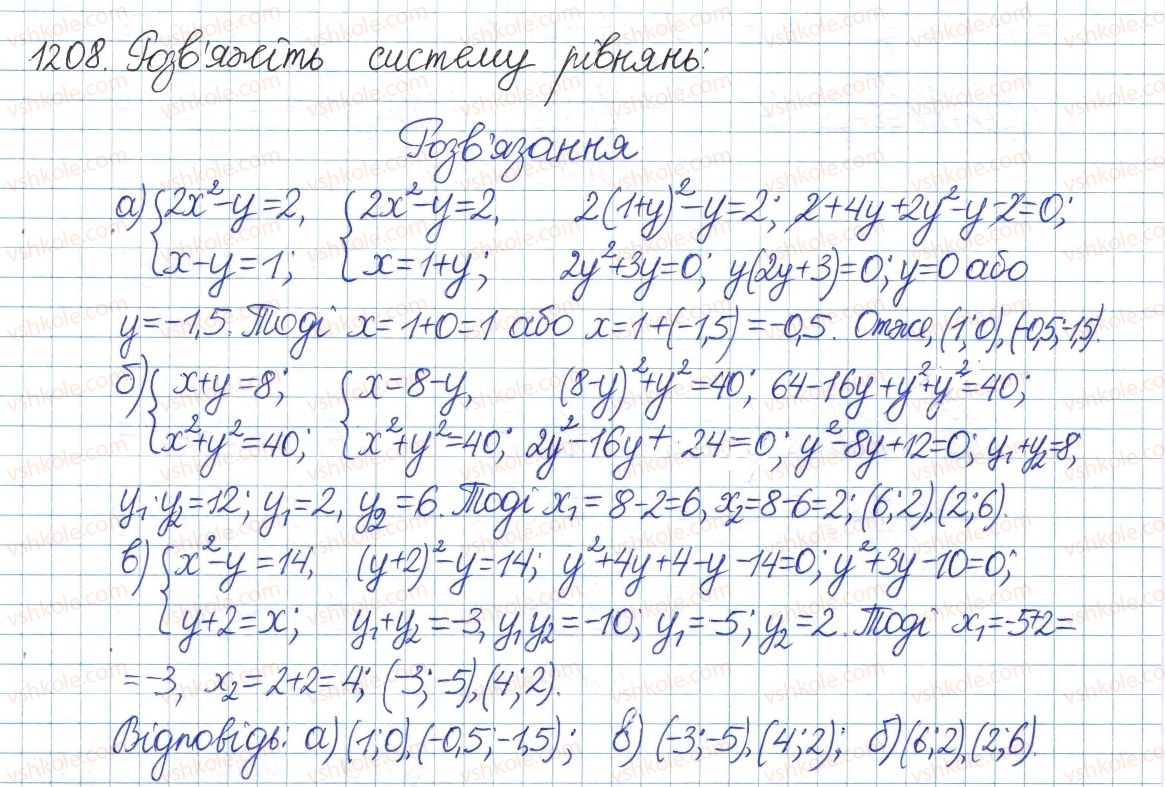 1208. Розв'яжіть систему рівнянь:
Розв'язання
а) {2x²-y=2, {2x²-y=2, 2(1+y)²-y=2; 2+4y+2y²-y-2=0;
x-y=1; x=1+y; 2y²+3y=0; y(2y+3)=0; y=0 або
y=-1,5. Тоді x=1+0=1 або x=1+(-1,5)=-0,5. Отже, (1;0), (-0,5;-1,5).
б) {x+y=8; {x=8-y, (8-y)²+y²=40; 64-16y+y²+y²=40;
x²+y²=40; x²+y²=40; 2y²-16y+24=0; y²-8y+12=0; y₁+y₂=8,
y₁·y₂=12; y₁=2, y₂=6. Тоді x₁=8-2=6, x₂=8-6=2; (6;2), (2;6).
в) {x²-y=14, (y+2)²-y=14; y²+4y+4-y-14=0; y²+3y-10=0;
y+2=x; y₁+y₂=-3, y₁y₂=-10; y₁=-5; y₂=2. Тоді x₁=-5+2=
=-3, x₂=2+2=4; (-3;-5), (4;2).
Відповідь: а) (1;0), (-0,5;-1,5); в) (-3;-5), (4;2); б) (6;2), (2;6).